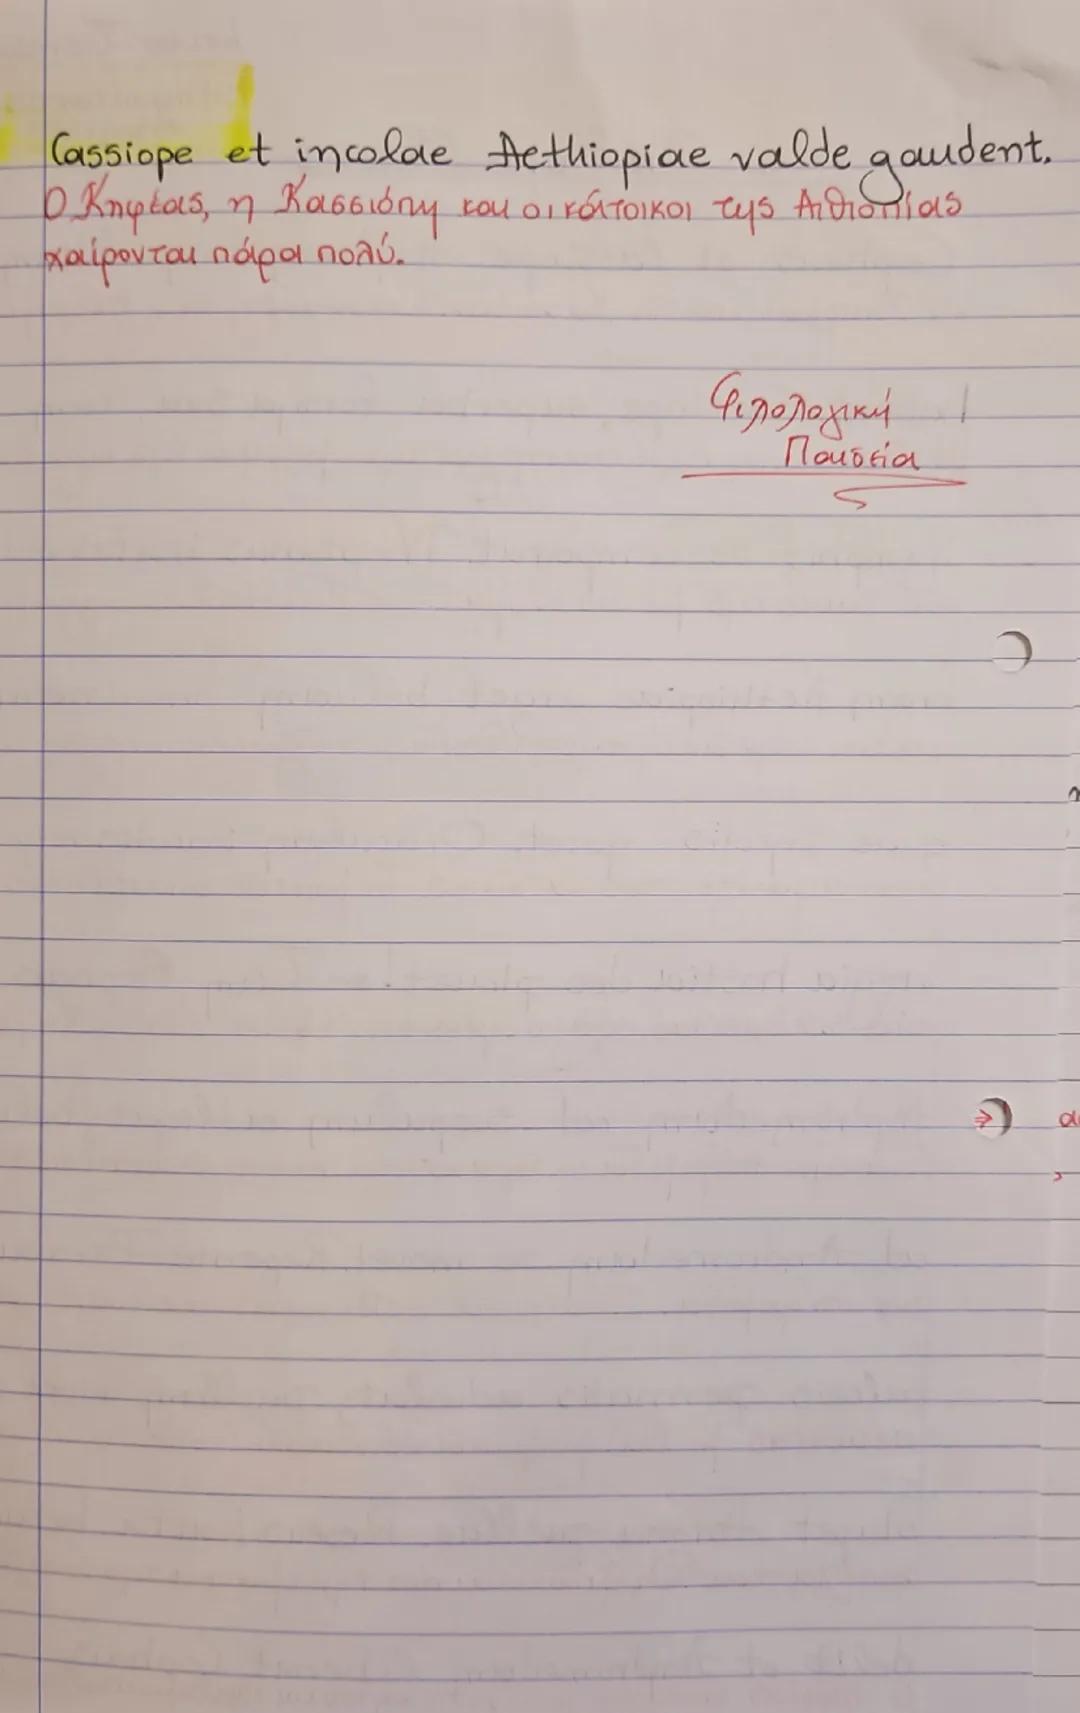 Cassiope et incolae Aethiopiae valde gaudent.
Ο Κηφέας, η Κασσιόπη και οι κάτοικοι της Αιθιοπίας
χαίρονται πάρα πολύ.
Φιλολογική
Παιδεία